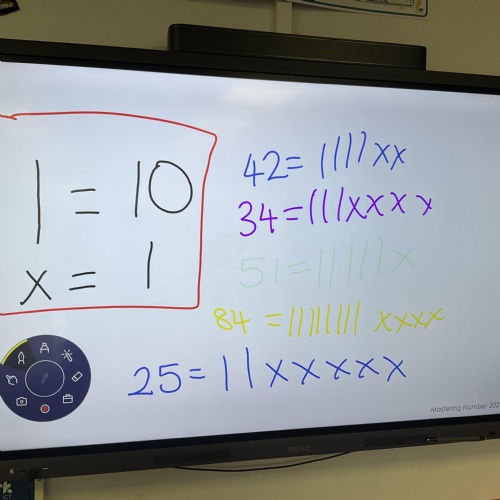 | = 10
x = 1
42 = ||||xx
34 = |||xxxx
51 = |||||x
84 = |||||||| xxxx
25 = ||xxxxx
Mastering Number 202
BENQ
ICT